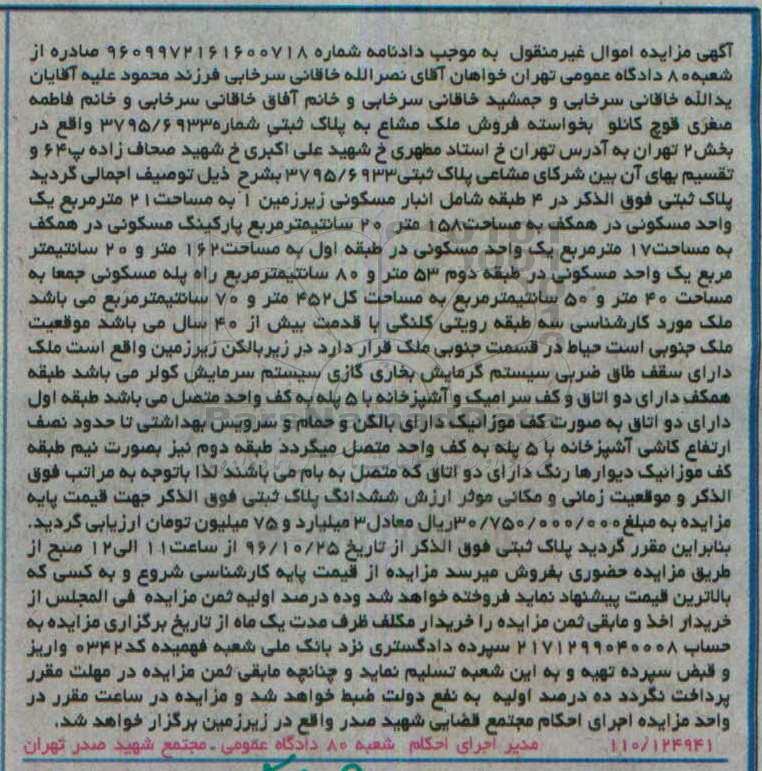 آگهی مزایده اموال غیرمنقول به موجب دادنامه شماره ۹۶۰۹۹۷۲۱۶۱۶۰۰۷۱۸ صادره از
شعبه۸۰ دادگاه عمومی تهران خواهان آقای نصرالله خاقانی سرخابی فرزند محمود علیه آقایان
یدالله خاقانی سرخابی و جمشید خاقانی سرخابی و خانم آفاق خاقانی سرخابی و خانم فاطمه
صغری قوچ کانلو بخواسته فروش ملک مشاع به پلاک ثبتی شماره۳۷۹۵/۶۹۳۳ واقع در
بخش۲ تهران به آدرس تهران خ استاد مطهری خ شهید علی اکبری خ شهید صحاف زاده پ۶۴ و
تقسیم بهای آن بین شرکای مشاعی پلاک ثبتی۳۷۹۵/۶۹۳۳ بشرح ذیل توصیف اجمالی گردید
پلاک ثبتی فوق الذکر در ۴ طبقه شامل انبار مسکونی زیرزمین ۱ به مساحت۲۱ مترمربع یک
واحد مسکونی در همکف به مساحت۱۵۸ متر ۲۰ سانتیمترمربع پارکینگ مسکونی در همکف
به مساحت۱۷ مترمربع یک واحد مسکونی در طبقه اول به مساحت۱۶۲ متر و ۲۰ سانتیمتر
مربع یک واحد مسکونی در طبقه دوم ۵۳ متر و ۸۰ سانتیمترمربع راه پله مسکونی جمعا به
مساحت ۴۰ متر و ۵۰ سانتیمترمربع به مساحت کل۴۵۲ متر و ۷۰ سانتیمترمربع می باشد
ملک مورد کارشناسی سه طبقه رویتی کلنگی با قدمت بیش از ۴۰ سال می باشد موقعیت
ملک جنوبی است حیاط در قسمت جنوبی ملک قرار دارد در زیربالکن زیرزمین واقع است ملک
دارای سقف طاق ضربی سیستم گرمایش بخاری گازی سیستم سرمایش کولر می باشد طبقه
همکف دارای دو اتاق و کف سرامیک و آشپزخانه با ۵ پله به کف واحد متصل می باشد طبقه اول
دارای دو اتاق به صورت کف موزانیک دارای بالکن و حمام و سرویس بهداشتی تا حدود نصف
ارتفاع کاشی آشپزخانه با ۵ پله به کف واحد متصل میگردد طبقه دوم نیز بصورت نیم طبقه
کف موزانیک دیوارها رنگ دارای دو اتاق که متصل به بام می باشند لذا باتوجه به مراتب فوق
الذکر و موقعیت زمانی و مکانی موثر ارزش ششدانگ پلاک ثبتی فوق الذکر جهت قیمت پایه
مزایده به مبلغ۳۰/۷۵۰/۰۰۰/۰۰۰ریال معادل۳ میلیارد و ۷۵ میلیون تومان ارزیابی گردید.
بنابراین مقرر گردید پلاک ثبتی فوق الذکر از تاریخ ۹۶/۱۰/۲۵ از ساعت۱۱ الی۱۲ صبح از
طریق مزایده حضوری بفروش میرسد مزایده از قیمت پایه کارشناسی شروع و به کسی که
بالاترین قیمت پیشنهاد نماید فروخته خواهد شد وده درصد اولیه ثمن مزایده فی المجلس از
خریدار اخذ و مابقی ثمن مزایده را خریدار مکلف ظرف مدت یک ماه از تاریخ برگزاری مزایده به
حساب ۲۱۷۱۲۹۹۰۴۰۰۰۸ سپرده دادگستری نزد بانک ملی شعبه فهمیده کد۰۳۴۲ واریز
و قبض سپرده تهیه و به این شعبه تسلیم نماید و چنانچه مابقی ثمن مزایده در مهلت مقرر
پرداخت نگردد ده درصد اولیه به نفع دولت ضبط خواهد شد و مزایده در ساعت مقرر در
واحد مزایده اجرای احکام مجتمع قضایی شهید صدر واقع در زیرزمین برگزار خواهد شد.
۱۱۰/۱۲۴۹۴۱ مدیر اجرای احکام شعبه ۸۰ دادگاه عمومی ـ مجتمع شهید صدر تهران